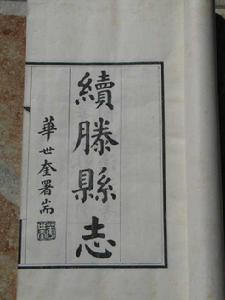 續滕縣志
華世奎署耑